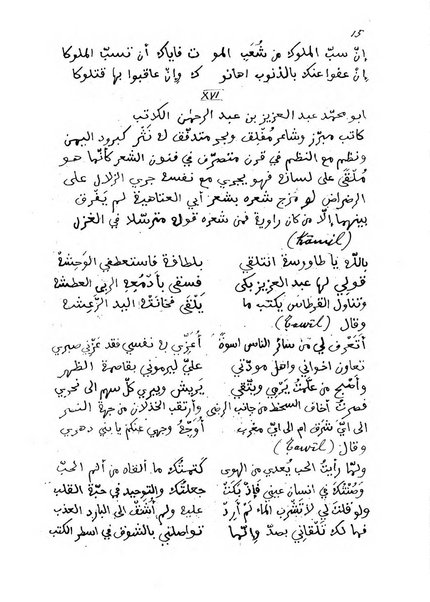 15
إنّ سبّ الملوك من شُعَبِ المو ت فاياك أن تسبّ الملوكا
إن عفوا عنك بالذنوب اهانو ك وإن عاقبوا بها قتلوكا
XVI
ابو محمّد عبد العزيز بن عبد الرحمٰن الكاتب
كاتب مبرّز وشاعر مُفلِق وبحر متدفّق له نَثر كبرود اليمن
ونظم مع النظم في قرن متصرّف في فنون الشعر كأنّما هو
مُلقًى على لسانه فهو يجري مع نفسه جري الزلال على
الرضراض لو مُزج شعره بشعر أبي العتاهية لم يَفرق
بينهما إلّا من كان راوية فمن شعره قوله مترسّلا في الغزل
(Kamil)
باللّه يا طاورسة انتلقي بلطافة فاستعطفي الوَحِشَه
قولي لها عبد العزيز بكى فسقى بأدمعه الربى العطشه
وتناول القرطاس يكتب ما يَلْقَى فخانته اليد الرَّعِشه
وقال (Tawil)
أتعرف لي من سائر الناس اسوةً أُعزّي به نفسي فقد عزّني صبري
تعاون اخواني واهل مودّتي عليّ ليرموني بقاصمة الظهر
وأصبح من علّمتُ يَرمي ويتّقي يريش ويبري كلّ سهم الى نحري
فصرت أخاف السخط من جانب الرضى وأرتقب الخذلان من جهة النصر
الى ايّ شرق ام الى ايّ مغرب أوجّهُ وجهي عنكم يا بني دهري
وقال (Tawil)
ولمّا رأيتُ الحب يُعدي من الهوى كتمتُك ما ألقاه من ألم الحبّ
وصُنتُك في انسان عيني فإذ بكتْ جعلتُك والتوحيد في حبّة القلب
ولو قلتَ لي لا تشرب الماء لم أرِد عليه ولم أُشفَ الى البارد العذب
فما لك تلقاني بصدّ وإنّما تواصلني بالشوق في اسطر الكتب